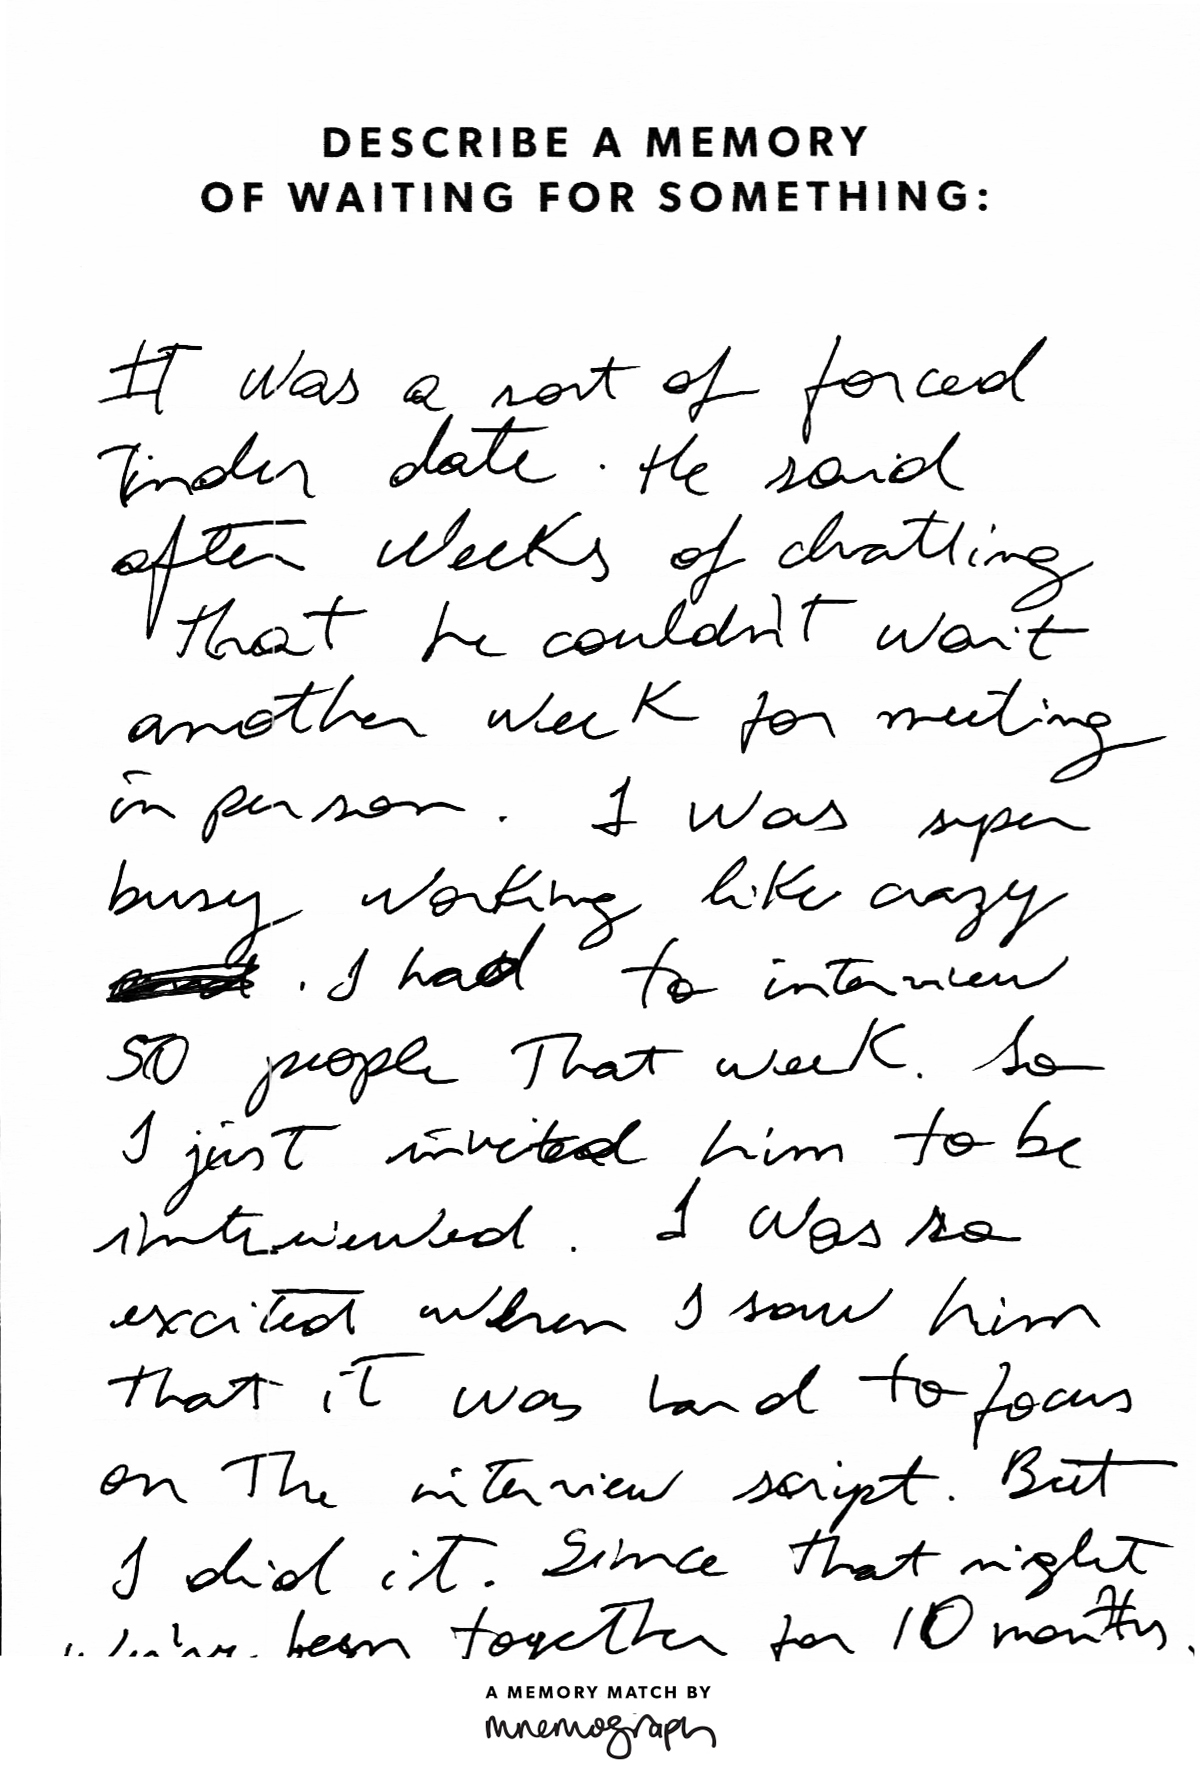 DESCRIBE A MEMORY
OF WAITING FOR SOMETHING:
It was a sort of forced
Tinder date. He said
after weeks of chatting
that he couldn't wait
another week for meeting
in person. I was super
busy working like crazy
. I had to interview
50 people that week. So
I just invited him to be
interviewed. I was so
excited when I saw him
that it was hard to focus
on the interview script. But
I did it. Since that night
we've been together for 10 months.
A MEMORY MATCH BY
mnemograph